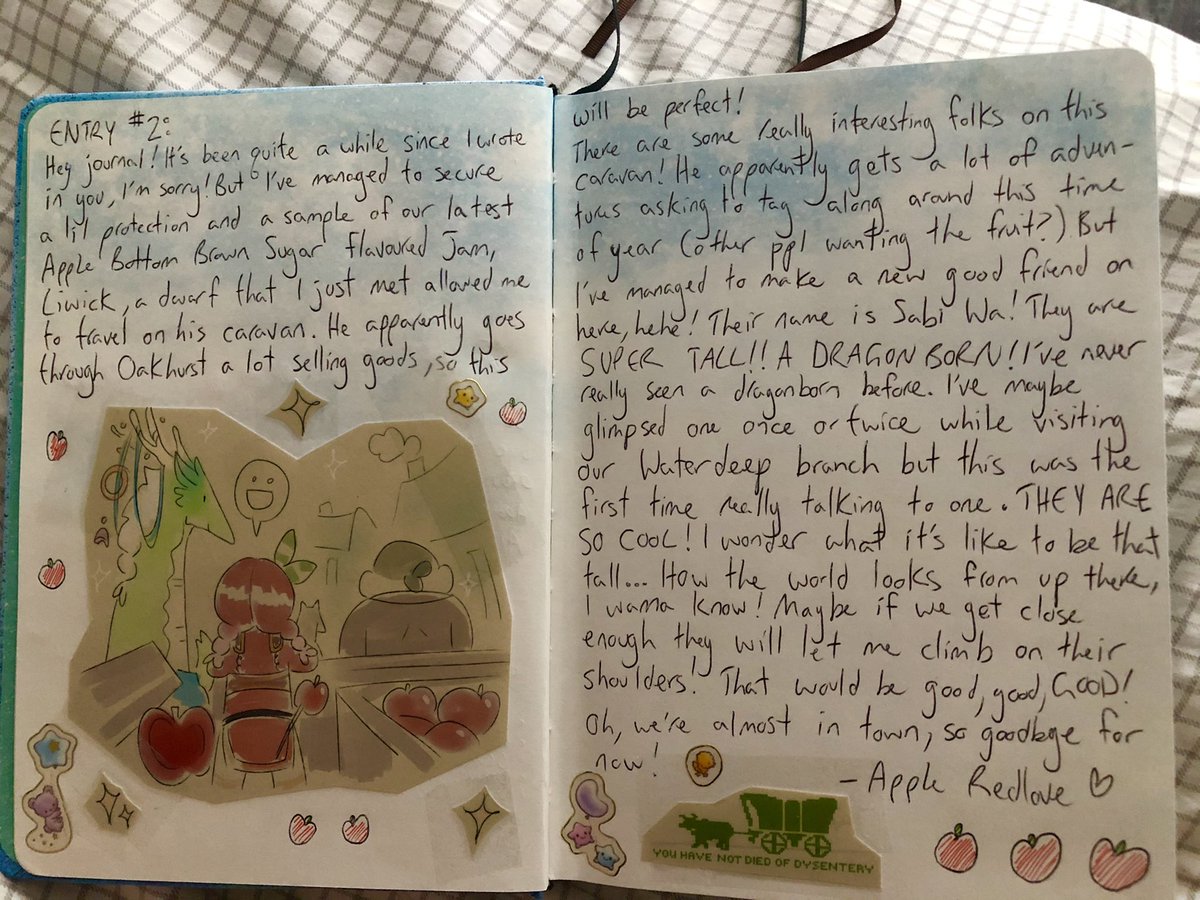 ENTRY #2:
Hey journal! It's been quite a while since I wrote
in you, I'm sorry! But I've managed to secure
a li'l protection and a sample of our latest
Apple Bottom Brown Sugar flavoured Jam,
Liwick, a dwarf that I just met allowed me
to travel on his caravan. He apparently goes
through Oakhurst a lot selling goods, so this
will be perfect!
There are some really interesting folks on this
caravan! He apparently gets a lot of adven-
tures asking to tag along around this time
of year (other ppl wanting the fruit?) But
I've managed to make a new good friend on
here, hehe! Their name is Sabi Wa! They are
SUPER TALL!! A DRAGONBORN! I've never
really seen a dragonborn before. I've maybe
glimpsed one once or twice while visiting
our Waterdeep branch but this was the
first time really talking to one. THEY ARE
SO COOL! I wonder what it's like to be that
tall... How the world looks from up there,
I wanna know! Maybe if we get close
enough they will let me climb on their
shoulders! That would be good, good, GOOD!
Oh, we're almost in town, so goodbye for
now!
- Apple Redlove ♡
YOU HAVE NOT DIED OF DYSENTERY